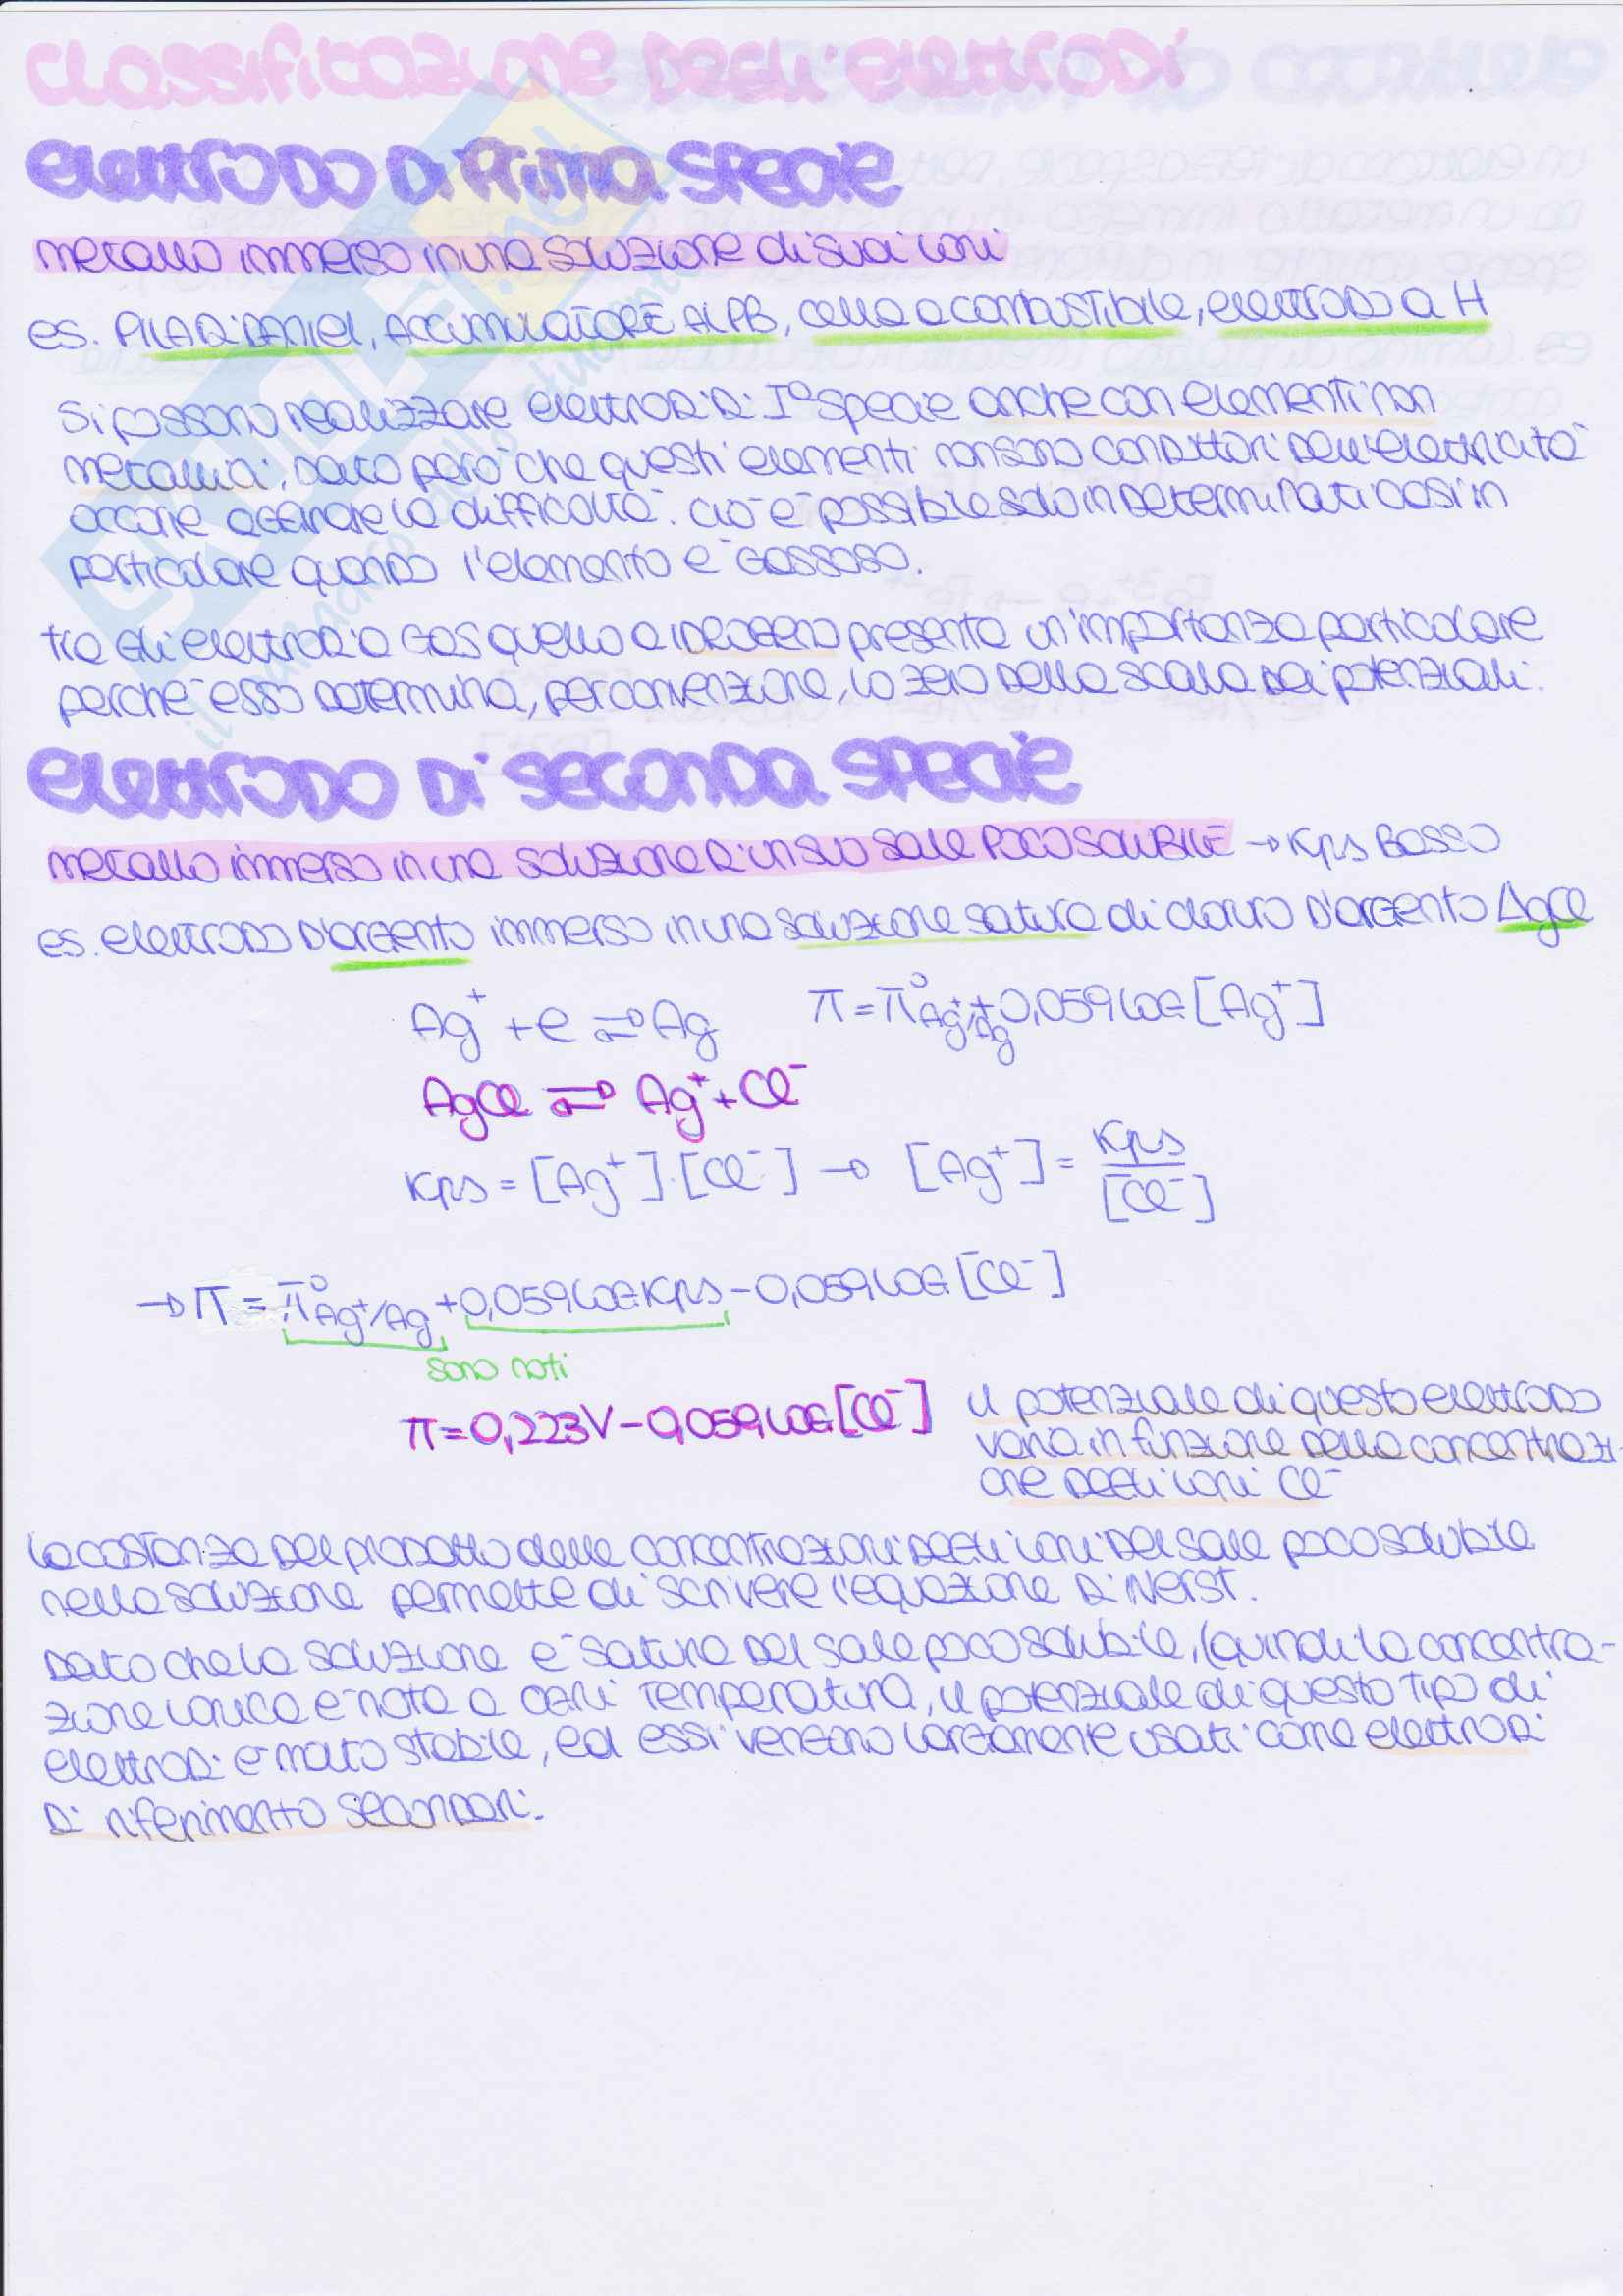 Classificazione degli elettrodi
elettrodo di prima specie
metallo immerso in una soluzione di suoi ioni
es. PILA DI DANIEL, ACCUMULATORE AL PB, cella a combustibile, elettrodo a H
Si possono realizzare elettrodi di I° specie anche con elementi non
metallici; dato però che questi elementi non sono conduttori dell'elettricità
occorre aggirare la difficoltà. ciò è possibile solo in determinati casi in
particolare quando l'elemento è gassoso.
tra gli elettrodi a gas quello a idrogeno presenta un'importanza particolare
perché esso determina, per convenzione, lo zero della scala dei potenziali.
elettrodo di seconda specie
metallo immerso in una soluzione di un suo sale POCO SOLUBILE → Kps BASSO
es. elettrodo d'argento immerso in una soluzione satura di cloruro d'argento AgCl
Ag⁺ + e ⇌ Ag π = π°Ag⁺/Ag + 0,059 LOG [Ag⁺]
AgCl ⇌ Ag⁺ + Cl⁻
Kps = [Ag⁺]·[Cl⁻] → [Ag⁺] = Kps / [Cl⁻]
→ π = π°Ag⁺/Ag + 0,059 LOG Kps - 0,059 LOG [Cl⁻]
sono noti
π = 0,223V - 0,059 LOG [Cl⁻]
il potenziale di questo elettrodo
varia in funzione della concentrazi-
one degli ioni Cl⁻
la costanza del prodotto delle concentrazioni degli ioni del sale poco solubile
nella soluzione permette di scrivere l'equazione di Nerst.
Dato che la soluzione è satura del sale poco solubile, (quindi la concentra-
zione ionica è nota a ogni temperatura, il potenziale di questo tipo di
elettrodi è molto stabile, ed essi vengono largamente usati come elettrodi
di riferimento secondari.